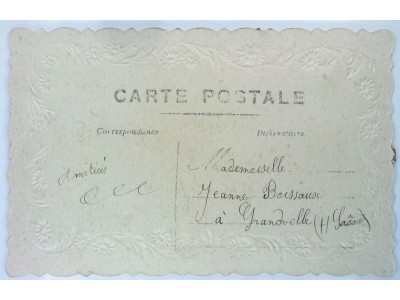 CARTE POSTALE
Correspondance
Destinataire
Amitiés
Mademoiselle
Jeanne Boissaux
à Grandvelle (H Saône)